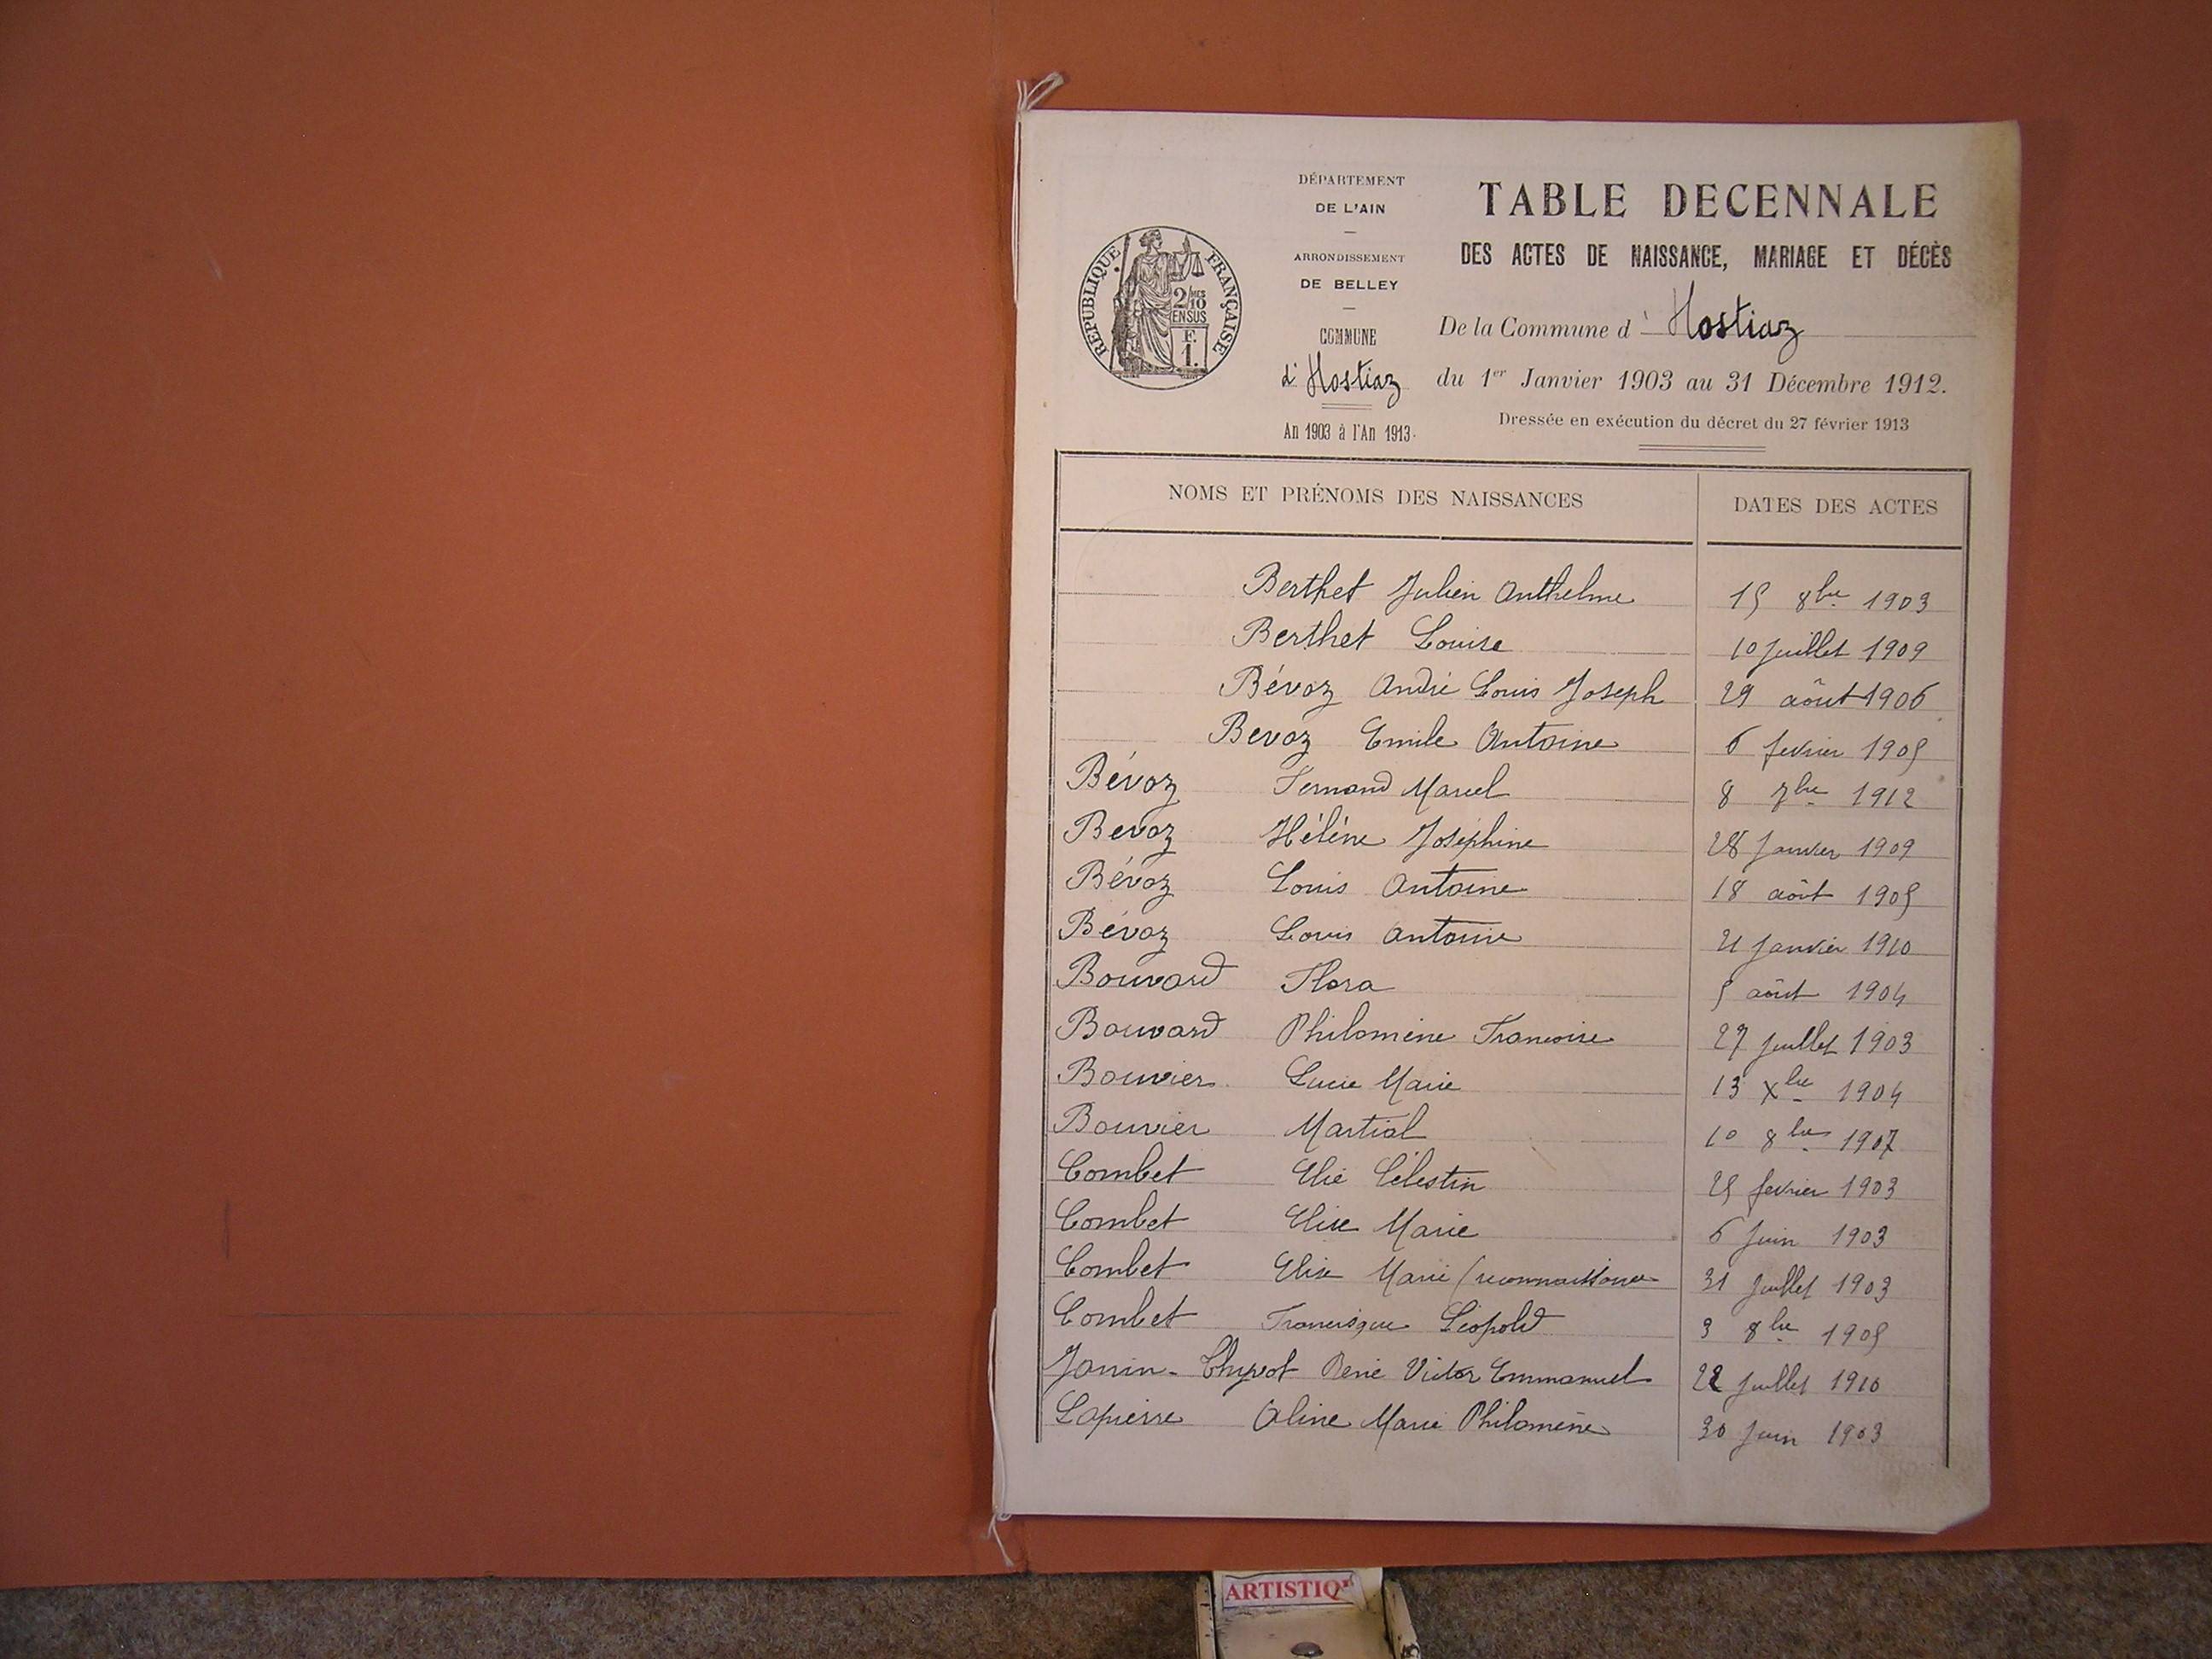 DÉPARTEMENT
DE L'AIN
ARRONDISSEMENT
DE BELLEY
COMMUNE
d'Hostiaz
An 1903 à l'An 1913.
RÉPUBLIQUE FRANÇAISE
2/10 MES
EN SUS
F.
1.
TABLE DECENNALE
DES ACTES DE NAISSANCE, MARIAGE ET DÉCÈS
De la Commune d' Hostiaz
du 1er Janvier 1903 au 31 Décembre 1912.
Dressée en exécution du décret du 27 février 1913
NOMS ET PRÉNOMS DES NAISSANCES DATES DES ACTES
Berthet Julien Anthelme 15 8bre 1903
Berthet Louise 10 juillet 1909
Bévoz André Louis Joseph 29 aôut 1906
Bevoz Emile Antoine 6 fevrier 1905
Bévoz Fernand Marcel 8 7bre 1912
Bevoz Hélène Joséphine 28 Janvier 1909
Bévoz Louis Antoine 18 aôut 1905
Bévoz Louis Antoine 21 Janvier 1910
Bouvard Flora 5 aôut 1904
Bouvard Philomène Francoise 27 juillet 1903
Bouvier Lucie Marie 13 Xbre 1904
Bouvier Martial 10 8bre 1907
Combet Elie Célestin 25 fevrier 1903
Combet Elise Marie 6 Juin 1903
Combet Elise Marie (reconnaissance 31 Juillet 1903
Combet Francisque Léopold 3 8bre 1905
Janin-Thyvot René Victor Emmanuel 22 juillet 1910
Lapierre Aline Marie Philomène 30 Juin 1903
ARTISTIQ